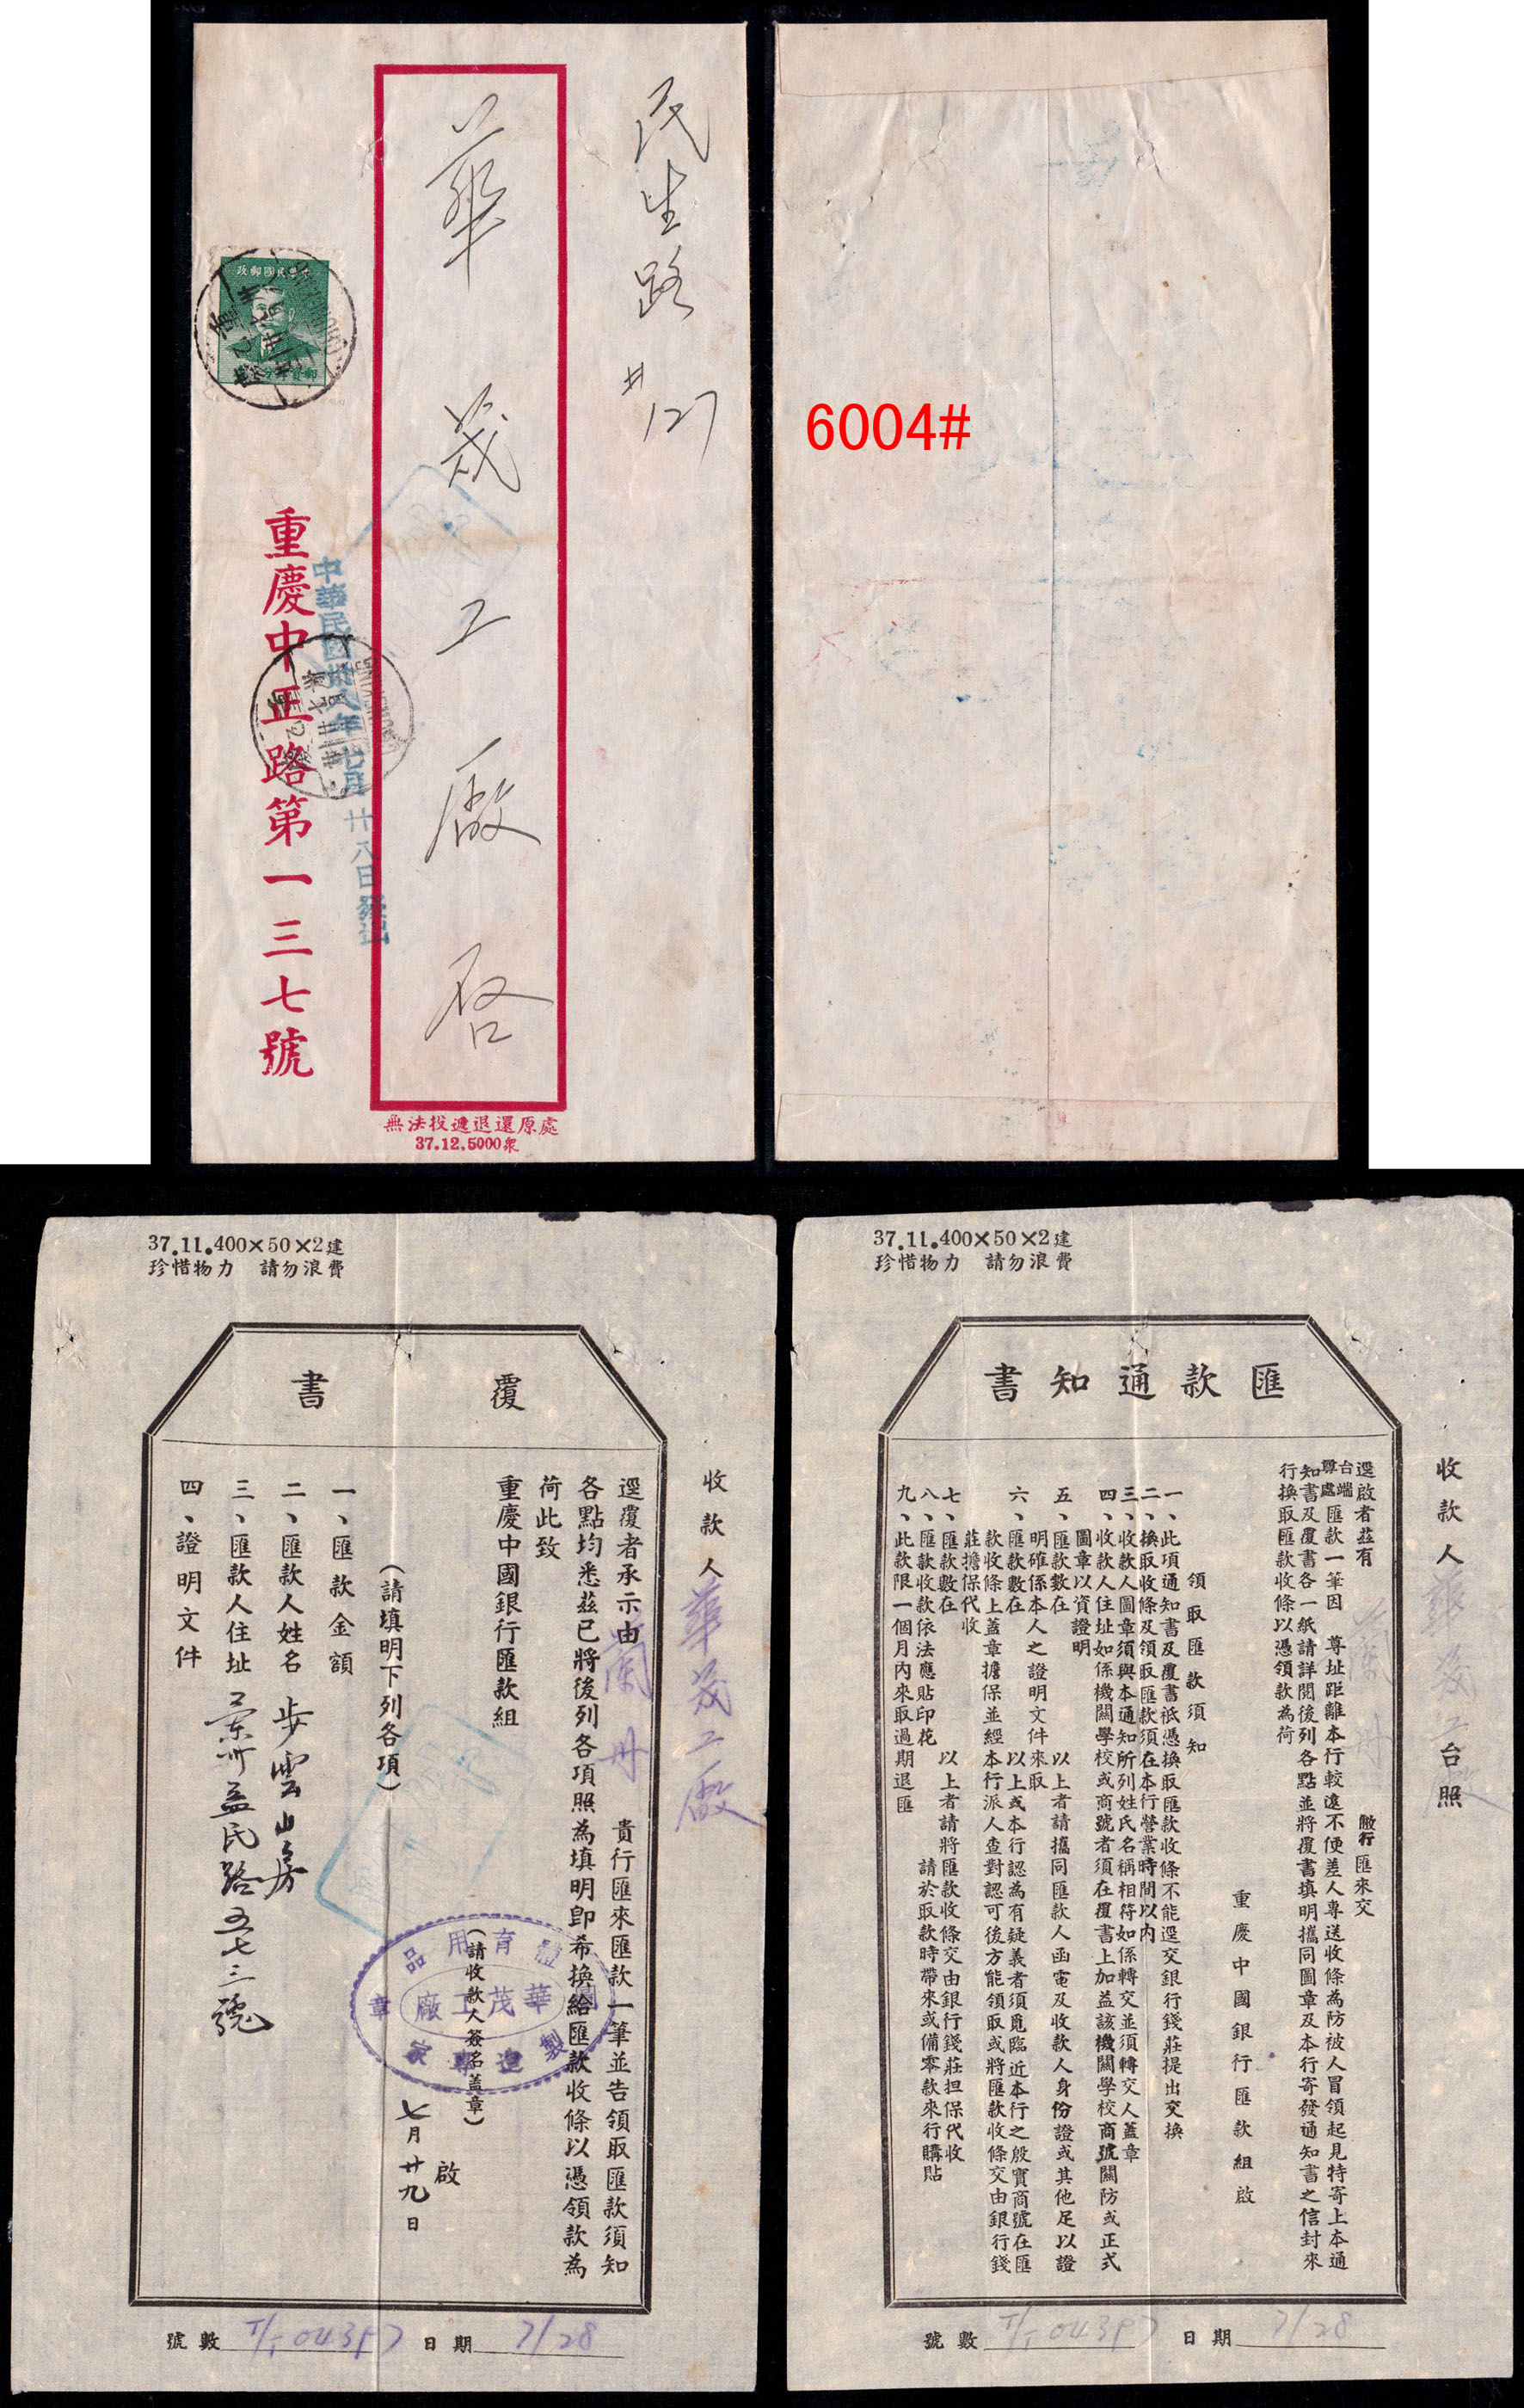 民生路
#127
華茂工廠 啓
中華民國郵政
重慶中正路第一三七號
中華民國卅八年七月廿八日發出
無法投遞退還原處
37.12.5000衆
6004#
37.11.400×50×2建
珍惜物力 請勿浪費
覆書
收款人 華茂工廠
逕覆者承示由蘭州 貴行匯來匯款一筆並告領取匯款須知
各點均悉茲已將後列各項照為填明卽希換給匯款收條以憑領款為
荷此致
重慶中國銀行匯款組
(請收款人簽名蓋章) 啟
七月廿九日
(請填明下列各項)
一、匯款金額
二、匯款人姓名 步雲山房
三、匯款人住址 蘭州益民路五七三號
四、證明文件
華茂工廠
號數 T/T 04397 日期 7/28
37.11.400×50×2建
珍惜物力 請勿浪費
匯款通知書
收款人 華茂工廠 台照
逕啟者茲有 蘭州 敝行匯來交
台端
尊處匯款一筆因 尊址距離本行較遠不便差人專送收條為防被人冒領起見特寄上本通
知書及覆書各一紙請詳閱後列各點並將覆書填明攜同圖章及本行寄發通知書之信封來
行換取匯款收條以憑領款為荷
重慶中國銀行匯款組啟
領取匯款須知
一、此項通知書及覆書祇憑換取匯款收條不能逕交銀行錢莊提出交換
二、換取收條及領取匯款須在本行營業時間以內
三、收款人圖章須與本通知所列姓氏名稱相符如係轉交並須轉交人蓋章
四、收款人住址如係機關學校或商號者須在覆書上加蓋該機關學校商號關防或正式
圖章以資證明
五、匯款數在 以上者請攜同匯款人函電及收款人身份證或其他足以證
明確係本人之證明文件來取
六、匯款數在 以上或本行認為有疑義者須覓臨近本行之殷實商號在匯
款收條上蓋章擔保並經本行派人查對認可後方能領取或將匯款收條交由銀行錢
莊擔保代收
七、匯款數在 以上者請將匯款收條交由銀行錢莊担保代收
八、匯款收款依法應貼印花 請於取款時帶來或備零款來行購貼
九、此款限一個月內來取過期退匯
號數 T/T 04397 日期 7/28